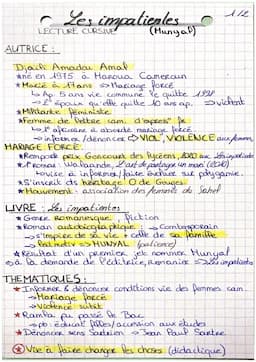 Les impatientes 1/2
LECTURE CURSIVE (Munyal)
AUTRICE:
Djaïli Amadou Amal
*née en 1975 à Maroua Cameroun
*Mariée à 17 ans => Mariage forcé
↳ Ap. 5 ans vie commune le quitte 1998
↳ 2e époux qu'elle quitte 10 ans ap. => violent
*Militante féministe
*Femme de lettre cam. d'expres° fr
↳ 1e africaine à aborde mariage forcé
↳ informer / dénoncer => VIOL, VIOLENCE aux femmes,
MARIAGE FORCÉ.
*Remporte prix Goncourt des lycéens, 2020 avec Les impatientes
*1er roman: Walaande, l'art de partager un mari (2010)
↳ vise à informer/faire évoluer sur polygamie.
*S'inscrit ds héritage O de Gouges
*Mouvement: association des femmes du Sahel
LIVRE: Les impatientes
*Genre romanesque, fiction
*Roman autobiographique: => Contemporain
↳ s'inspire de sa vie + celle de sa famille
↳ leitmotiv => MUNYAL (patience)
*Résultat d'un premier jet nommer Munyal
=> à la demande de l'éditrice, remanie => Les impatientes
THEMATIQUES:
*Informer & dénoncer conditions vie des femmes cam.
↳ Mariage forcé
↳ Violence subit
*Ramla pu passé le Bac
↳ pb: éducat° filles/accession aux études
*Dénoncer sens Sartrien => Jean Paul Sartre
*Vise à faire changer les choses (didactique)